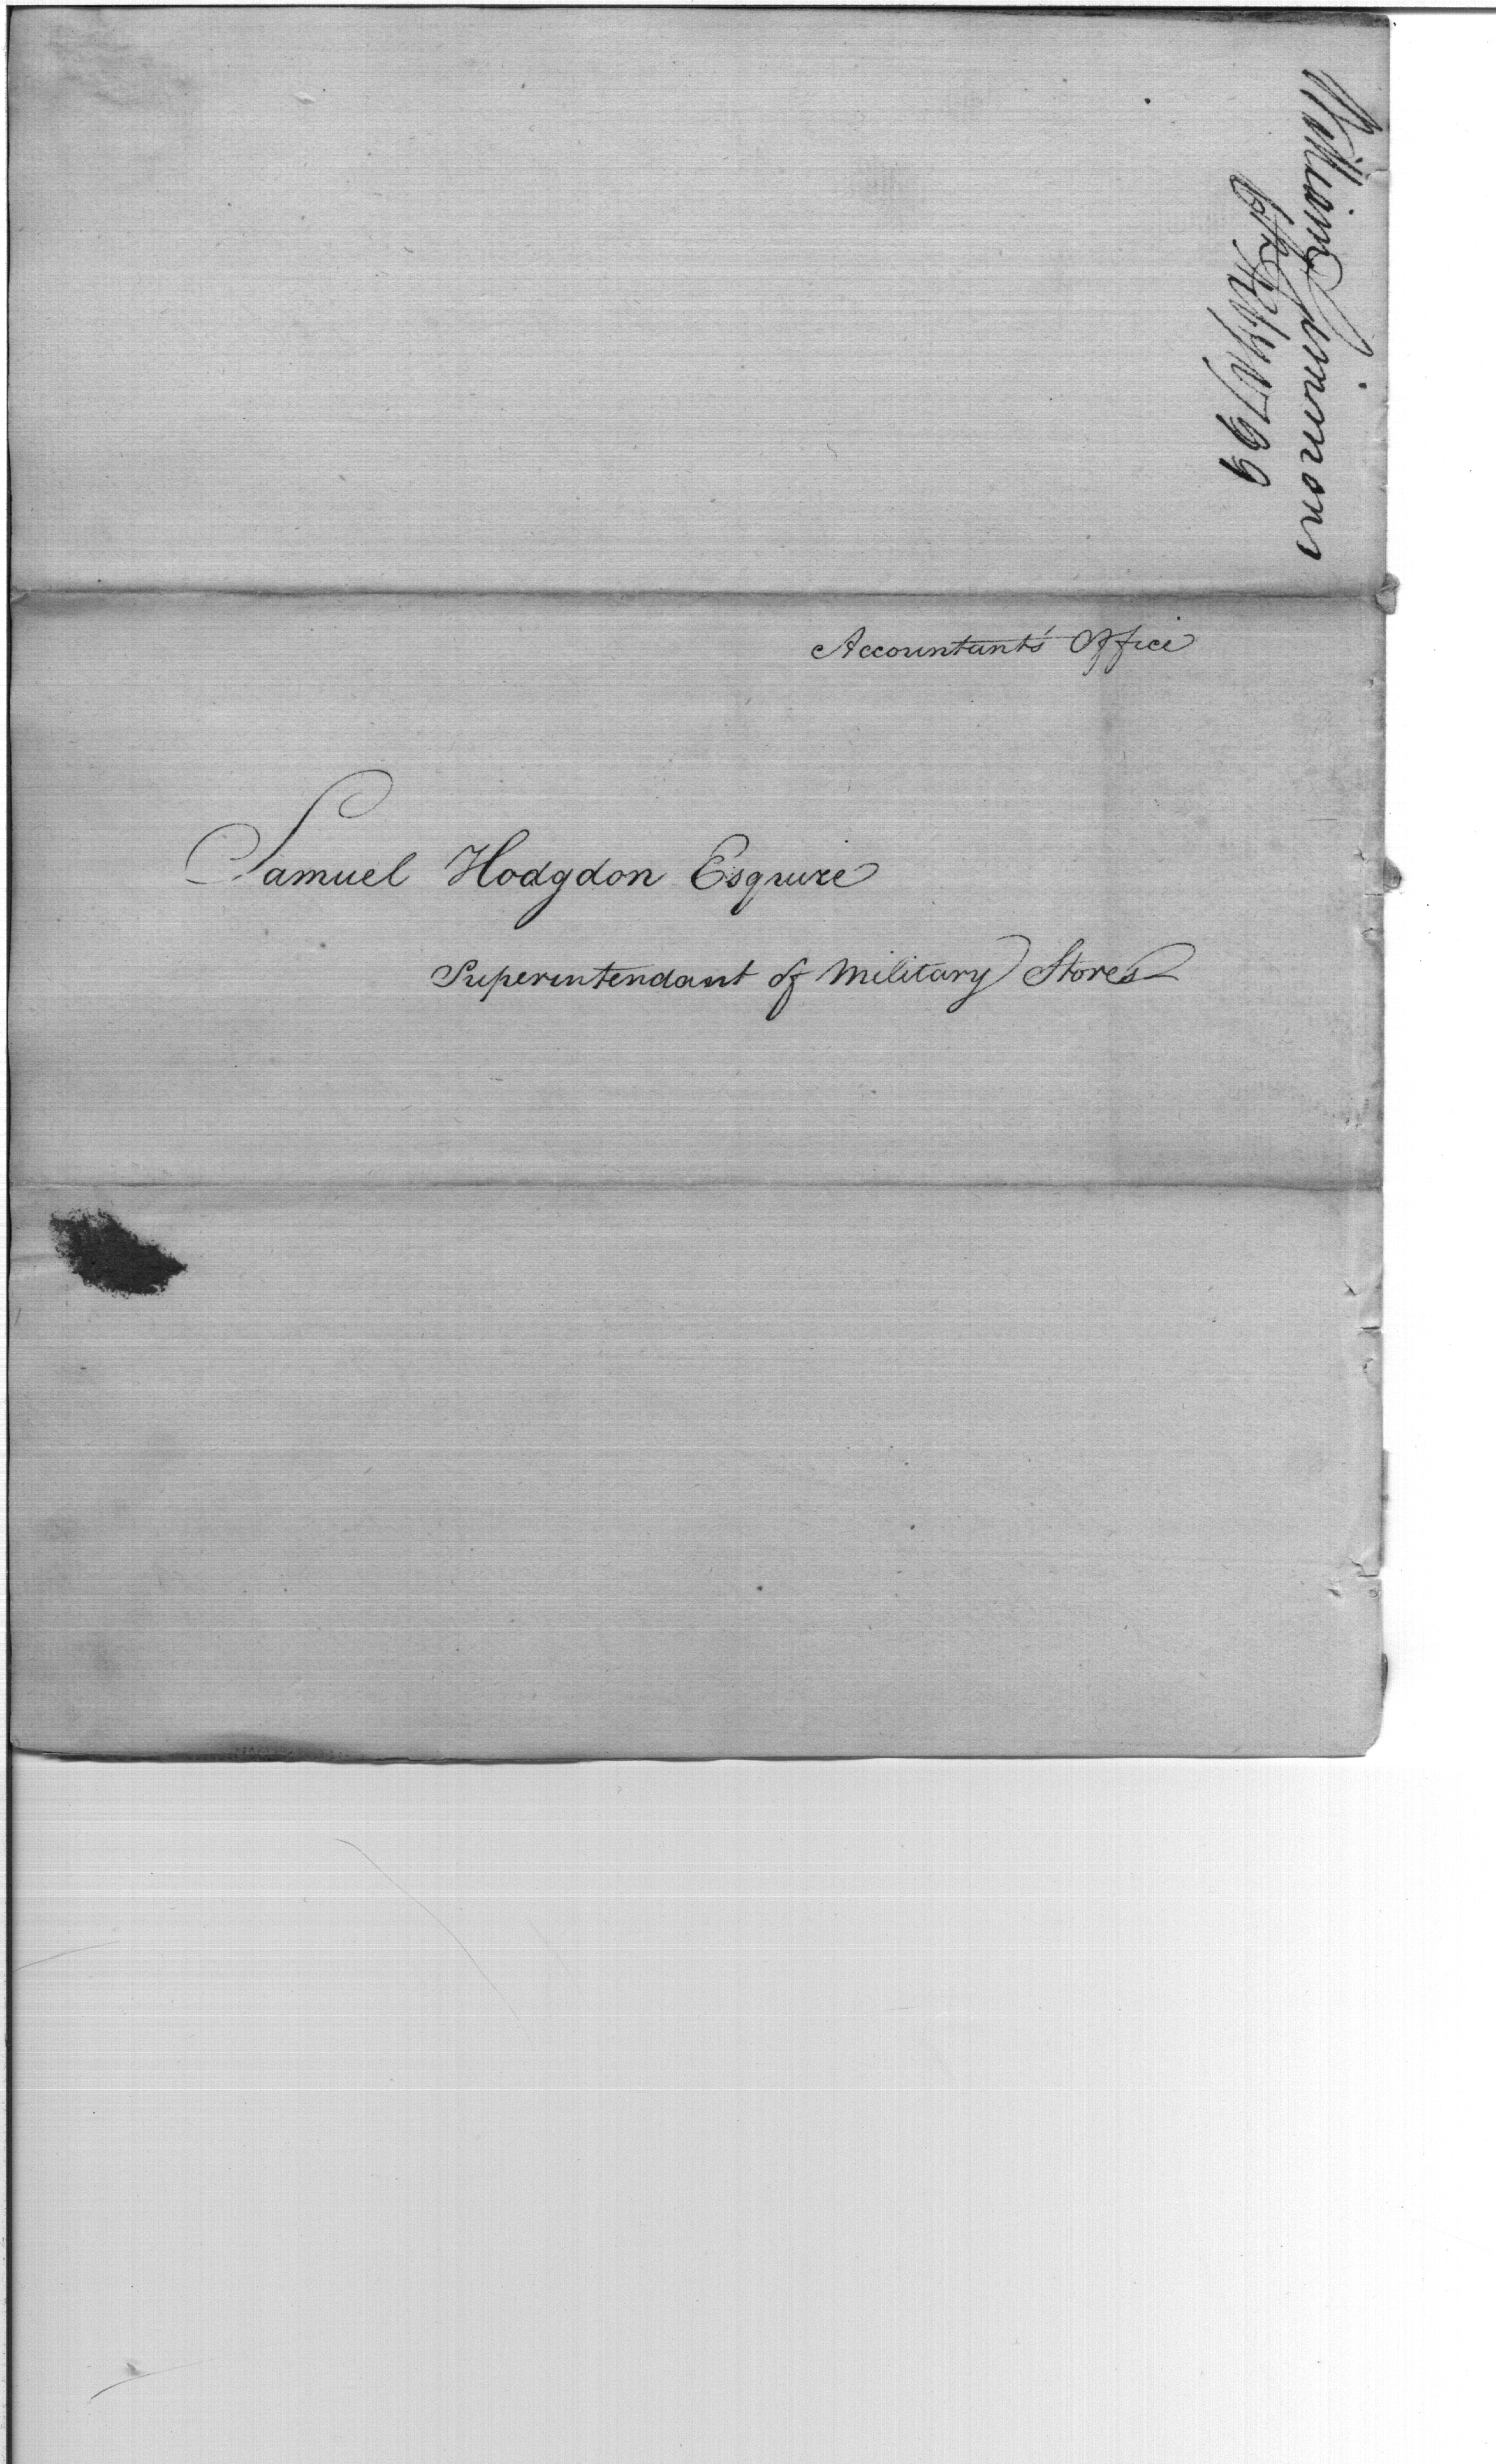 William Simmons
1799
Accountant's Office
Samuel Hodgdon Esquire
Superintendant of Military Stores